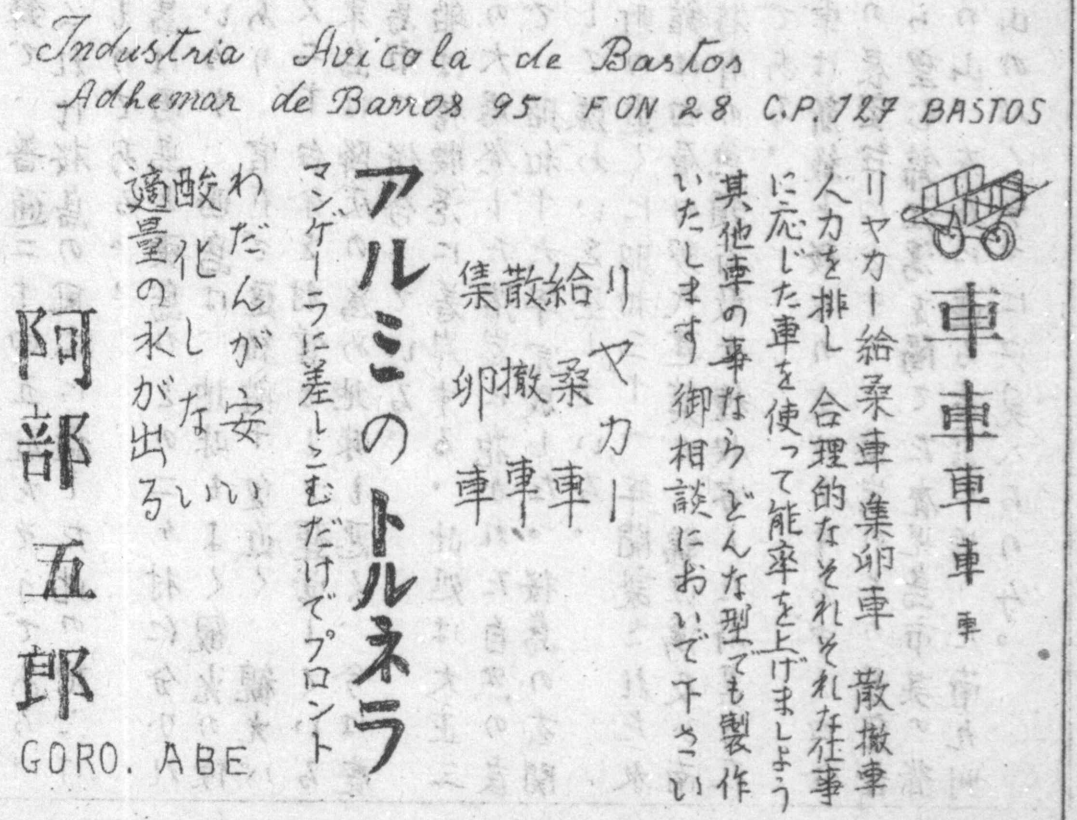 Industria Avicola de Bastos
Adhemar de Barros 95 FON 28 C.P. 127 BASTOS
車車車車車
リヤカー給桑車 集卵車 散撒車
人力を排し 合理的なそれぞれな仕事
に応じた車を使って能率を上げましょう
其他車の事なら どんな型でも製作
いたします 御相談においで下さい
リヤカー
給桑車
散撒車
集卵車
アルミのトルネラ
マンゲーラに差しこむだけでプロント
わだんが安い
酸化しない
適量の水が出る
阿部五郎
GORO. ABE